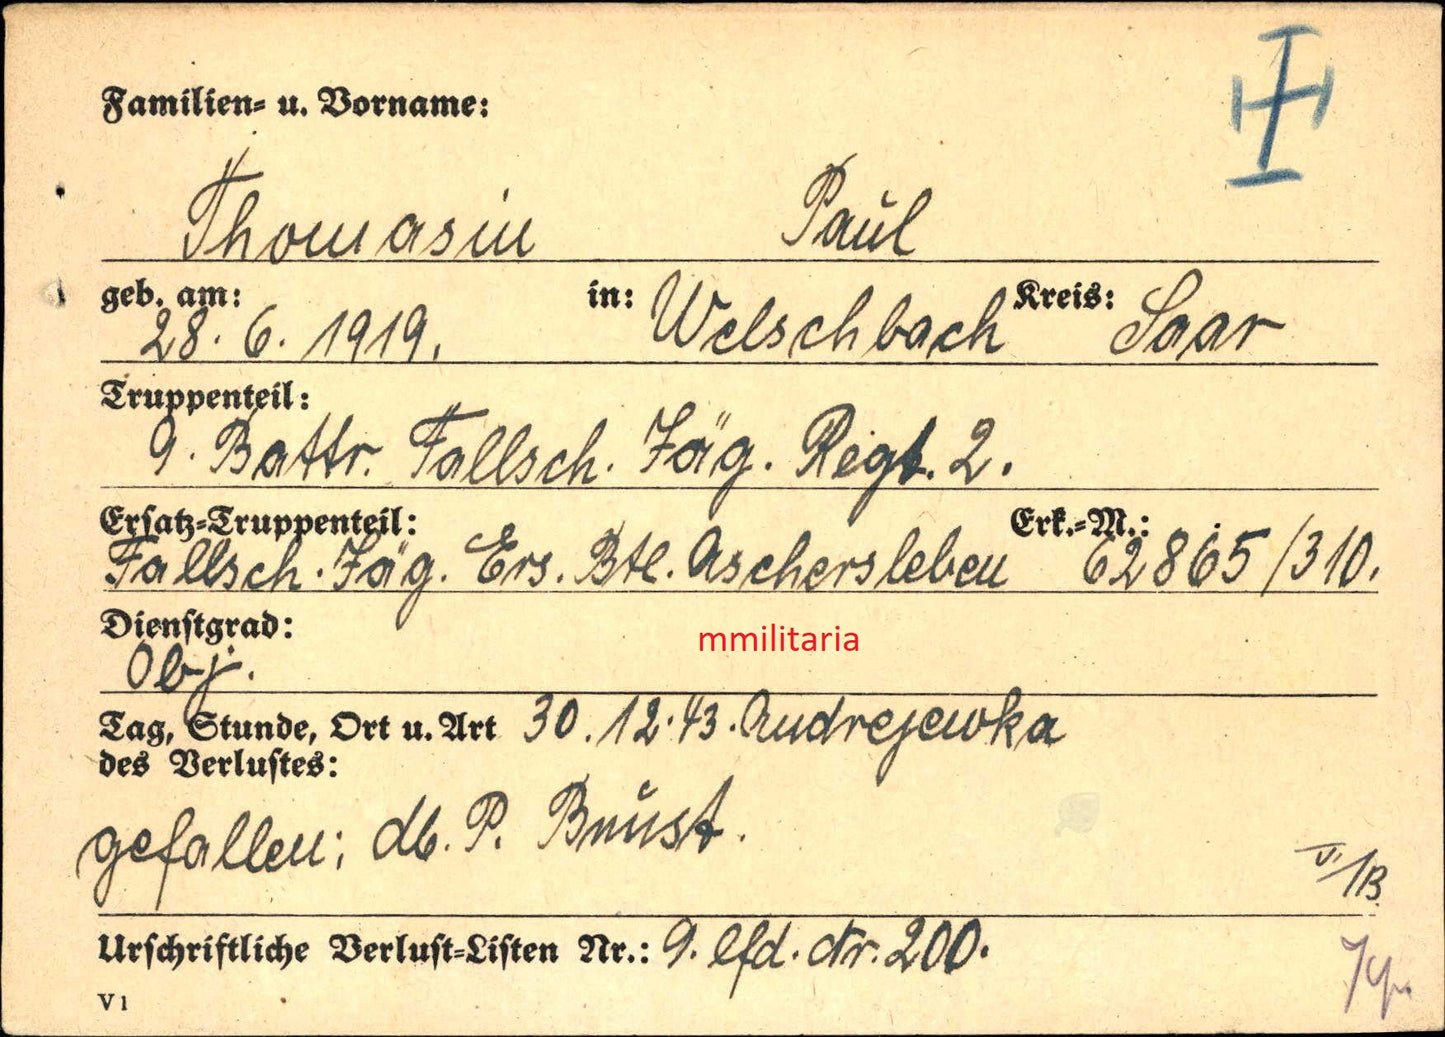 Familien- u. Vorname:
Thomasin Paul
geb. am: in: Kreis:
28. 6. 1919. Welschbach Saar
Truppenteil:
9. Battr. Fallsch. Jäg. Regt. 2.
Ersatz-Truppenteil: Erk.-M.:
Fallsch. Jäg. Ers. Btl. Aschersleben 62865/310.
Dienstgrad:
Obj.
mmilitaria
Tag, Stunde, Ort u. Art 30. 12. 43. Andrejewka
des Verlustes:
gefallen; db. P. Brust.
V/B
Urschriftliche Verlust-Listen Nr.: 9. lfd. Nr. 200.
V 1